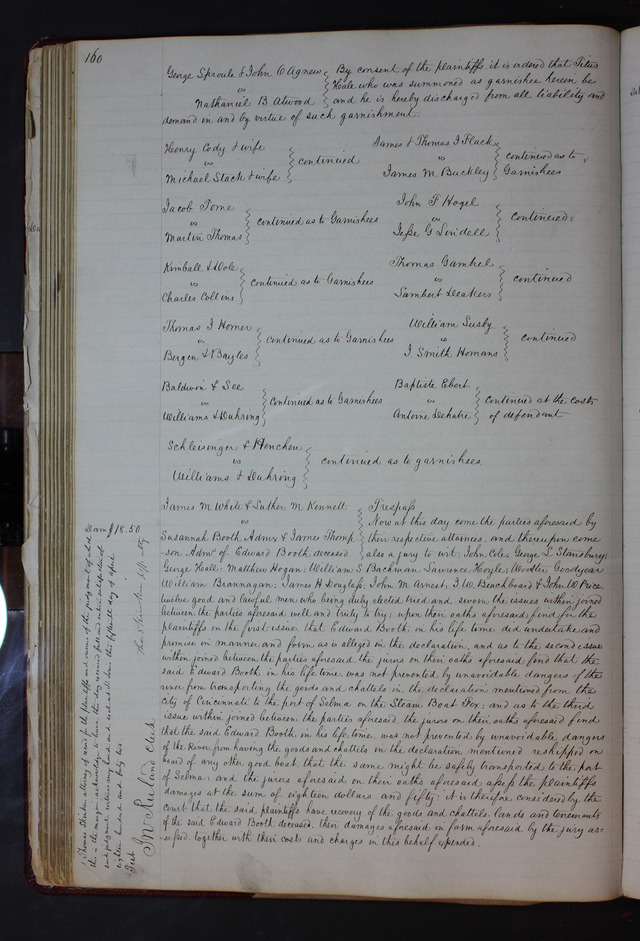 160
George Sproule & John C Agnew } By consent of the plaintiffs it is ordered that Titus
vs Hale who was summoned as garnishee herein be
Nathaniel B Atwood } and he is hereby discharged from all liability and
demand in and by virtue of such garnishment.
Henry Cody & wife
vs } continued
Michael Stack & wife
James & Thomas J Flack
vs } continued as to Garnishees
James M Buckley
Jacob Tome
vs } continued as to Garnishees
Martin Thomas
John F Hogel
vs } continued
Jesse G Lindell
Kimball & Dole
vs } continued as to Garnishees
Charles Collins
Thomas Gambel
vs } continued
Lambert Deakers
Thomas J Homer
vs } continued as to Garnishees
Bergen & Bayles
William Susby
vs } continued
J Smith Homans
Baldwin & See
vs } continued as to Garnishees
Williams & Duhring
Baptiste Ebert
vs } continued at the costs
Antoine Dehatre } of defendant
Schleisenger & Henchen
vs } continued as to garnishees
Williams & Duhring
James M White & Luther M Kennett } Trespass
vs Now at this day come the parties aforesaid by
Susannah Booth Admx & James Thomp } their respective attorneys, and thereupon come
son Admr of Edward Booth deceased } also a jury to wit: John Cole; George L Stansbury;
George Hall; Matthew Hogan; William S Backman Lawrence Hoyle; Wooster Goodyear
William Brannagan; James H Douglass; John M Arnest; J. W. Beachboard & John W Price
twelve good and lawful men who being duly elected tried and sworn the issues within joined
between the parties aforesaid well and truly to try; upon their oaths aforesaid find for the
plaintiffs on the first issue that Edward Booth, in his life time did undertake and
promise in manner and form as is alleged in the declaration, and as to the second issue
within joined between the parties aforesaid the jurors on their oaths aforesaid find that the
said Edward Booth in his life time, was not prevented by unavoidable dangers of the
river from transporting the goods and chattels in the declaration mentioned from the
city of Cincinnati to the port of Selma on the Steam Boat Fox; and as to the third
issue within joined between the parties aforesaid, the jurors on their oaths aforesaid find
that the said Edward Booth in his life time, was not prevented by unavoidable dangers
of the River from having the goods and chattels in the declaration mentioned reshipped on
board of any other good boat that the same might be safely transported to the port
of Selma; and the jurors aforesaid on their oaths aforesaid assess the plaintiffs
damages at the sum of eighteen dollars and fifty: it is therefore considered by the
court that the said plaintiffs have recovery of the goods and chattels, lands and tenements
of the said Edward Booth deceased, their damages aforesaid in form aforesaid by the jury as-
sessed together with their costs and charges in this behalf expended.
Dam $18.50
eighteen hundred and forty two
Test
Clerk